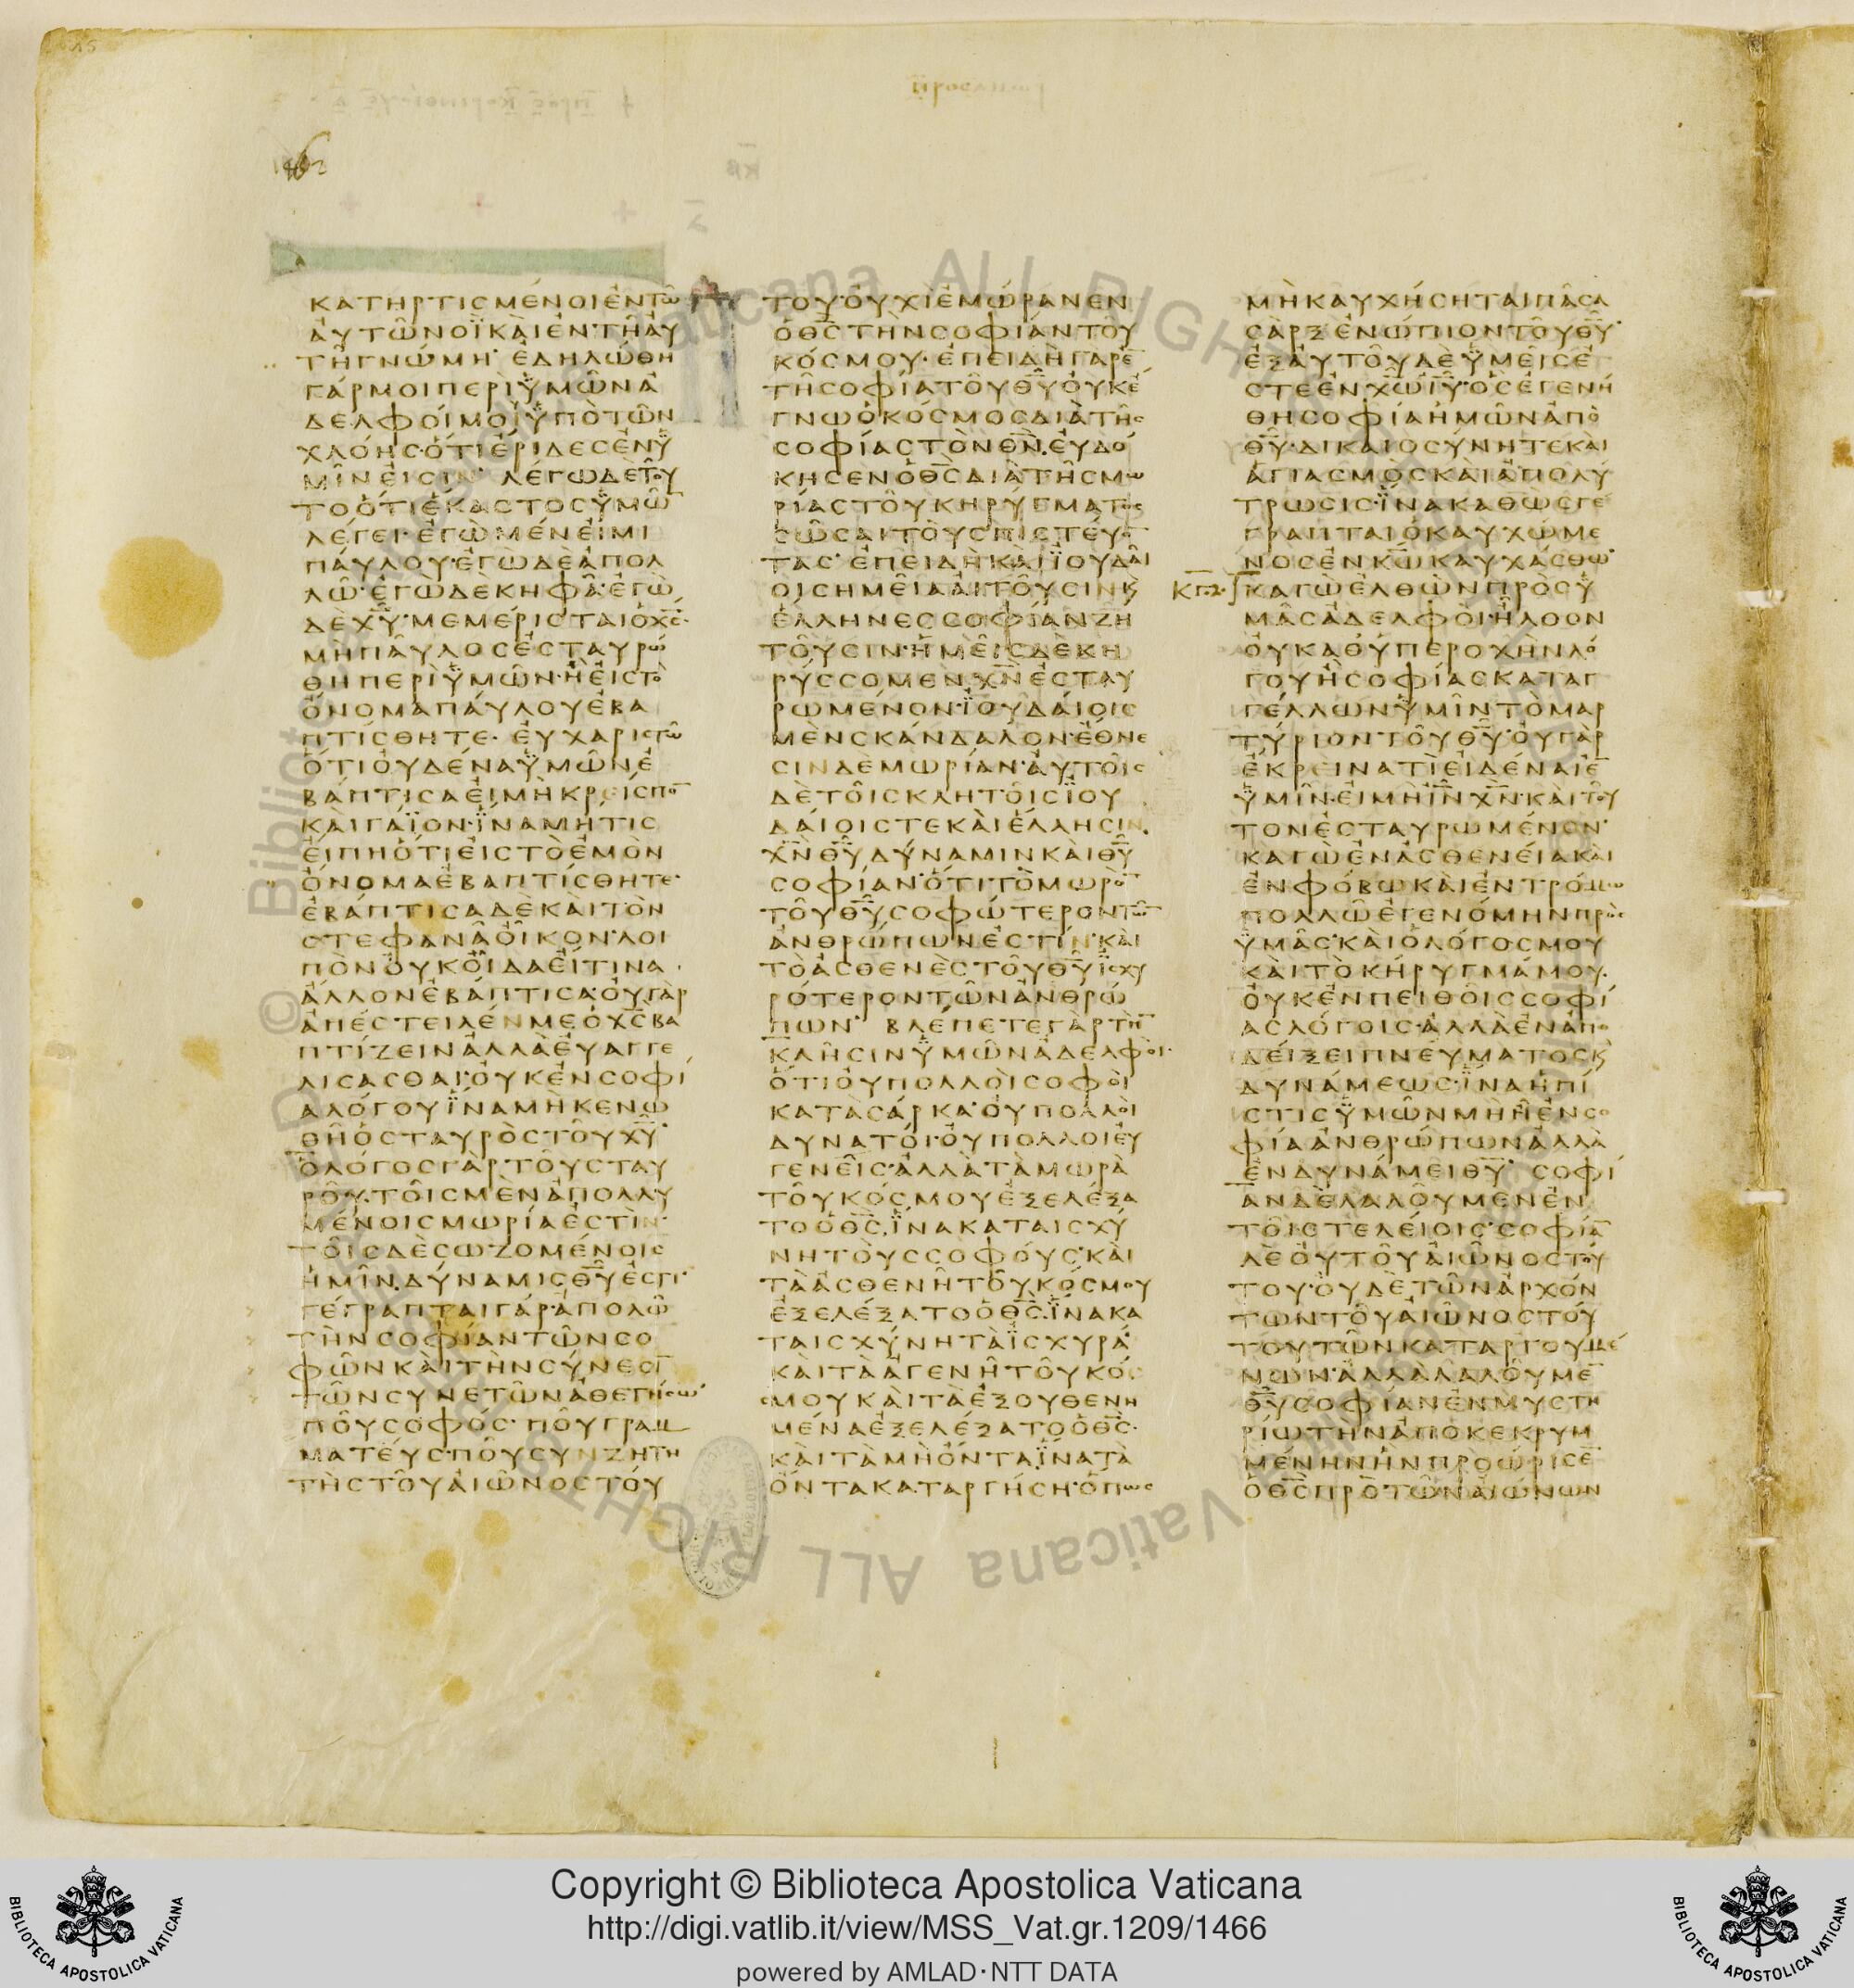 1462
ΚΑΤΗΡΤΙСΜΕΝΟΙΕΝΤΩ
ΑΥΤΩΝΟΪΚΑΙΕΝΤΗΑΥ
ΤΗΓΝΩΜΗ· ΕΔΗΛΩΘΗ
ΓΑΡΜΟΙΠΕΡΙΫΜΩΝΑ
ΔΕΛΦΟΙΜΟΙΫΠΟΤΩΝ
ΧΛΟΗС·ΟΤΙΕΡΙΔΕСΕΝΫ
ΜΙΝΕΙСΙΝ· ΛΕΓΩΔΕΤΟΥ
ΤΟΟΤΙΕΚΑСΤΟСΫΜΩ̅
ΛΕΓΕΙ·ΕΓΩΜΕΝΕΙΜΙ
ΠΑΥΛΟΥ·ΕΓΩΔΕΑΠΟΛ
ΛΩ·ΕΓΩΔΕΚΗΦΑ·ΕΓΩ
ΔΕΧ̅Υ̅·ΜΕΜΕΡΙСΤΑΙΟΧ̅С̅·
ΜΗΠΑΥΛΟСΕСΤΑΥΡΩ
ΘΗΠΕΡΙΫΜΩΝ·ΗΕΙСΤΟ
ΟΝΟΜΑΠΑΥΛΟΥΕΒΑ
ΠΤΙСΘΗΤΕ· ΕΥΧΑΡΙСΤΩ
ΟΤΙΟΥΔΕΝΑΫΜΩΝΕ
ΒΑΠΤΙСΑΕΙΜΗΚΡΕΙСΠΟ̅
ΚΑΙΓΑΪΟΝ·ΪΝΑΜΗΤΙС
ΕΙΠΗΟΤΙΕΙСΤΟΕΜΟΝ
ΟΝΟΜΑΕΒΑΠΤΙСΘΗΤΕ·
ΕΒΑΠΤΙСΑΔΕΚΑΙΤΟΝ
СΤΕΦΑΝΑΟΙΚΟΝ·ΛΟΙ
ΠΟΝΟΥΚΟΙΔΑΕΙΤΙΝΑ
ΑΛΛΟΝΕΒΑΠΤΙСΑ·ΟΥΓΑΡ
ΑΠΕСΤΕΙΛΕΝΜΕΟΧ̅С̅ΒΑ
ΠΤΙΖΕΙΝΑΛΛΑΕΥΑΓΓΕ
ΛΙСΑСΘΑΙ·ΟΥΚΕΝСΟΦΙ
ΑΛΟΓΟΥΪΝΑΜΗΚΕΝΩ
ΘΗΟСΤΑΥΡΟСΤΟΥΧ̅Υ̅·
ΟΛΟΓΟСΓΑΡΤΟΥСΤΑΥ
ΡΟΥ·ΤΟΙСΜΕΝΑΠΟΛΛΥ
ΜΕΝΟΙСΜΩΡΙΑΕСΤΙΝ·
ΤΟΙСΔΕСΩΖΟΜΕΝΟΙС
ΗΜΙΝΔΥΝΑΜΙСΘ̅Υ̅ΕСΤΙ·
ΓΕΓΡΑΠΤΑΙΓΑΡ·ΑΠΟΛΩ
ΤΗΝСΟΦΙΑΝΤΩΝСΟ
ΦΩΝΚΑΙΤΗΝСΥΝΕСΙ̅
ΤΩΝСΥΝΕΤΩΝΑΘΕΤΗСΩ·
ΠΟΥСΟΦΟС· ΠΟΥΓΡΑΜ
ΜΑΤΕΥС·ΠΟΥСΥΝΖΗΤΗ
ΤΗСΤΟΥΑΙΩΝΟСΤΟΥ
ΤΟΥ·ΟΥΧΙΕΜΩΡΑΝΕΝ
ΟΘ̅С̅ΤΗΝСΟΦΙΑΝΤΟΥ
ΚΟСΜΟΥ·ΕΠΕΙΔΗΓΑΡΕ̅
ΤΗСΟΦΙΑΤΟΥΘ̅Υ̅ΟΥΚΕ
ΓΝΩΟΚΟСΜΟСΔΙΑΤΗС
СΟΦΙΑСΤΟΝΘ̅Ν̅·ΕΥΔΟ
ΚΗСΕΝΟΘ̅С̅ΔΙΑΤΗСΜΩ
ΡΙΑСΤΟΥΚΗΡΥΓΜΑΤΟС
СΩСΑΙΤΟΥСΠΙСΤΕΥΟ̅
ΤΑС·ΕΠΕΙΔΗΚΑΙΪΟΥΔΑΙ
ΟΙСΗΜΕΙΑΑΙΤΟΥСΙΝΚϚ
ΕΛΛΗΝΕССΟΦΙΑΝΖΗ
ΤΟΥСΙΝ·ΗΜΕΙСΔΕΚΗ
ΡΥССΟΜΕΝΧ̅Ν̅ΕСΤΑΥ
ΡΩΜΕΝΟΝ·ΪΟΥΔΑΙΟΙС
ΜΕΝСΚΑΝΔΑΛΟΝ·ΕΘΝΕ
СΙΝΔΕΜΩΡΙΑΝ·ΑΥΤΟΙС
ΔΕΤΟΙСΚΛΗΤΟΙСΪΟΥ
ΔΑΙΟΙСΤΕΚΑΙΕΛΛΗСΙΝ
Χ̅Ν̅Θ̅Υ̅ΔΥΝΑΜΙΝΚΑΙΘ̅Υ̅
СΟΦΙΑΝ·ΟΤΙΤΟΜΩΡΟ̅
ΤΟΥΘ̅Υ̅СΟΦΩΤΕΡΟΝΤΩ̅
ΑΝΘΡΩΠΩΝΕСΤΙΝ·ΚΑΙ
ΤΟΑСΘΕΝΕСΤΟΥΘ̅Υ̅ΪСΧΥ
ΡΟΤΕΡΟΝΤΩΝΑΝΘΡΩ
ΠΩΝ· ΒΛΕΠΕΤΕΓΑΡΤΗ̅
ΚΛΗСΙΝΫΜΩΝΑΔΕΛΦΟΙ·
ΟΤΙΟΥΠΟΛΛΟΙСΟΦΟΙ
ΚΑΤΑСΑΡΚΑ·ΟΥΠΟΛΛΟΙ
ΔΥΝΑΤΟΙ·ΟΥΠΟΛΛΟΙΕΥ
ΓΕΝΕΙС·ΑΛΛΑΤΑΜΩΡΑ
ΤΟΥΚΟСΜΟΥΕΞΕΛΕΞΑ
ΤΟΟΘ̅С̅·ΪΝΑΚΑΤΑΙСΧΥ
ΝΗΤΟΥССΟΦΟΥС·ΚΑΙ
ΤΑΑСΘΕΝΗΤΟΥΚΟСΜΟΥ
ΕΞΕΛΕΞΑΤΟΟΘ̅С̅·ΪΝΑΚΑ
ΤΑΙСΧΥΝΗΤΑΪСΧΥΡΑ·
ΚΑΙΤΑΑΓΕΝΗΤΟΥΚΟС
ΜΟΥΚΑΙΤΑΕΞΟΥΘΕΝΗ
ΜΕΝΑΕΞΕΛΕΞΑΤΟΟΘ̅С̅·
ΚΑΙΤΑΜΗΟΝΤΑ·ΪΝΑΤΑ
ΟΝΤΑΚΑΤΑΡΓΗСΗ·ΟΠΩС
ΜΗΚΑΥΧΗСΗΤΑΙΠΑСΑ
СΑΡΞΕΝΩΠΙΟΝΤΟΥΘ̅Υ̅·
ΕΞΑΥΤΟΥΔΕΫΜΕΙСΕ
СΤΕΕΝΧ̅Ω̅Ι̅Υ̅·ΟСΕΓΕΝΗ
ΘΗСΟΦΙΑΗΜΩΝΑΠΟ
Θ̅Υ̅·ΔΙΚΑΙΟСΥΝΗΤΕΚΑΙ
ΑΓΙΑСΜΟСΚΑΙΑΠΟΛΥ
ΤΡΩСΙС·ΪΝΑΚΑΘΩСΓΕ
ΓΡΑΠΤΑΙΟΚΑΥΧΩΜΕ
ΝΟСΕΝΚ̅Ω̅ΚΑΥΧΑСΘΩ·
ΚΑΓΩΕΛΘΩΝΠΡΟСΫ
ΜΑСΑΔΕΛΦΟΙ·ΗΛΘΟΝ
ΟΥΚΑΘΥΠΕΡΟΧΗΝΛΟ
ΓΟΥΗСΟΦΙΑСΚΑΤΑΓ
ΓΕΛΛΩΝΫΜΙΝΤΟΜΑΡ
ΤΥΡΙΟΝΤΟΥΘ̅Υ̅·ΟΥΓΑΡ
ΕΚΡΕΙΝΑΤΙΕΙΔΕΝΑΙΕ̅
ΫΜΙΝ·ΕΙΜΗΙ̅Ν̅Χ̅Ν̅·ΚΑΙΤΟΥ
ΤΟΝΕСΤΑΥΡΩΜΕΝΟΝ·
ΚΑΓΩΕΝΑСΘΕΝΕΙΑΚΑΙ
ΕΝΦΟΒΩΚΑΙΕΝΤΡΟΜΩ
ΠΟΛΛΩΕΓΕΝΟΜΗΝΠΡΟС
ΫΜΑС·ΚΑΙΟΛΟΓΟСΜΟΥ
ΚΑΙΤΟΚΗΡΥΓΜΑΜΟΥ·
ΟΥΚΕΝΠΕΙΘΟΙССΟΦΙ
ΑСΛΟΓΟΙС·ΑΛΛΑΕΝΑΠΟ
ΔΕΙΞΕΙΠΝΕΥΜΑΤΟСΚϚ
ΔΥΝΑΜΕΩС·ΪΝΑΗΠΙ
СΤΙСΫΜΩΝΜΗΗΕΝСΟ
ΦΙΑΑΝΘΡΩΠΩΝΑΛΛΑ
ΕΝΔΥΝΑΜΕΙΘ̅Υ̅· СΟΦΙ
ΑΝΔΕΛΑΛΟΥΜΕΝΕΝ
ΤΟΙСΤΕΛΕΙΟΙС·СΟΦΙΑ̅
ΔΕΟΥΤΟΥΑΙΩΝΟСΤΟΥ
ΤΟΥ·ΟΥΔΕΤΩΝΑΡΧΟΝ
ΤΩΝΤΟΥΑΙΩΝΟСΤΟΥ
ΤΟΥΤΩΝΚΑΤΑΡΓΟΥΜΕ
ΝΩΝ·ΑΛΛΑΛΑΛΟΥΜΕ̅
Θ̅Υ̅СΟΦΙΑΝΕΝΜΥСΤΗ
ΡΙΩΤΗΝΑΠΟΚΕΚΡΥΜ
ΜΕΝΗΝΗΝΠΡΟΩΡΙСΕ̅
ΟΘ̅С̅ΠΡΟΤΩΝΑΙΩΝΩΝ
© Biblioteca Apostolica Vaticana ALL RIGHT
Copyright © Biblioteca Apostolica Vaticana
http://digi.vatlib.it/view/MSS_Vat.gr.1209/1466
powered by AMLAD·NTT DATA
BIBLIOTECA APOSTOLICA VATICANA
BIBLIOTECA APOSTOLICA VATICANA